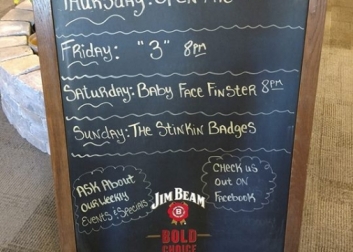 Thursday: Open Mic
Friday: "3" 8pm
Saturday: Baby Face Finster 8pm
Sunday: The Stinkin Badges
Ask About
our weekly
Events & Specials
Jim Beam
B
BOLD
CHOICE
Check us
out on
Facebook